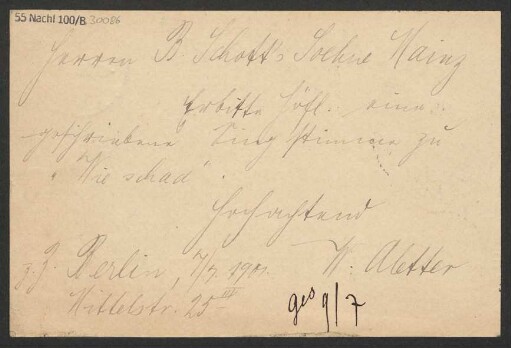 55 Nachl 100/B, 30086
Herren B. Schott's Soehne Mainz
Erbitte höfl. eine
geschriebene Singstimme zu
"Wie schad".
Hochachtend
z. Z. Berlin, 7/7. 1901. W. Aletter
Mittelstr. 25 III
ges 9/7